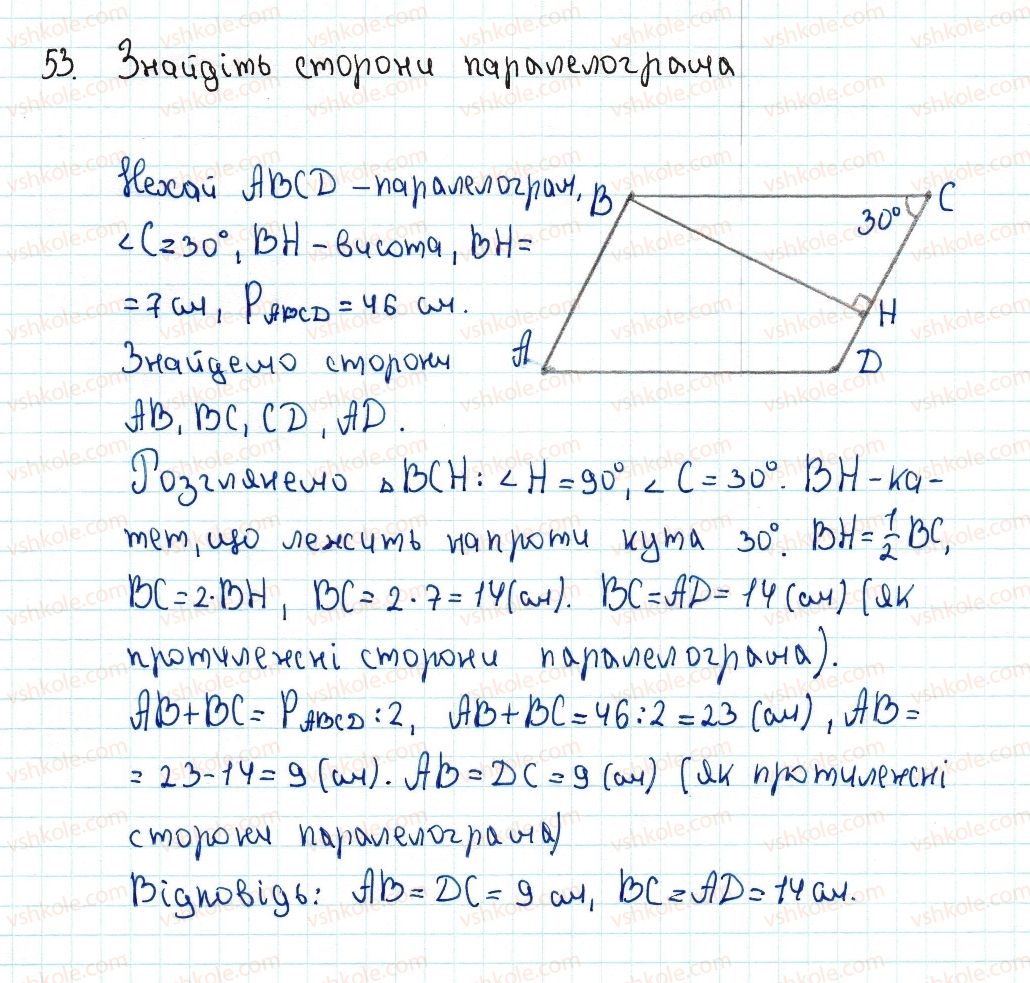 53. Знайдіть сторони паралелограма
Нехай ABCD – паралелограм,
∠C = 30°, BH – висота, BH =
= 7 см, P ABCD = 46 см.
Знайдемо сторони
AB, BC, CD, AD.
B
C
30°
H
A
D
Розглянемо ▵ BCH: ∠H = 90°, ∠C = 30°. BH – ка-
тет, що лежить напроти кута 30°. BH = 1/2 BC,
BC = 2·BH, BC = 2·7 = 14 (см). BC = AD = 14 (см) (як
протилежні сторони паралелограма).
AB + BC = P ABCD : 2, AB + BC = 46 : 2 = 23 (см), AB =
= 23 - 14 = 9 (см). AB = DC = 9 (см) (як протилежні
сторони паралелограма)
Відповідь: AB = DC = 9 см, BC = AD = 14 см.
vshkole.com